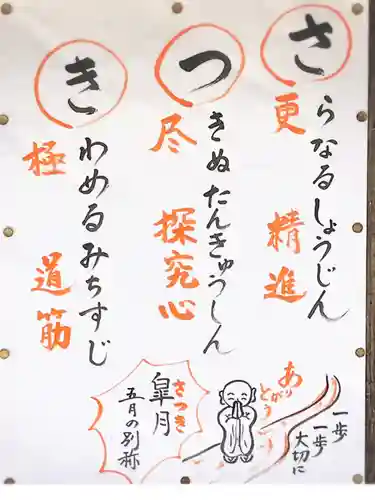 さらなるしょうじん
更 精進
つきぬたんきゅうしん
尽 探究心
きわめるみちすじ
極 道筋
ありがとう
一歩
一歩
大切に
さつき
皐月
五月の別称